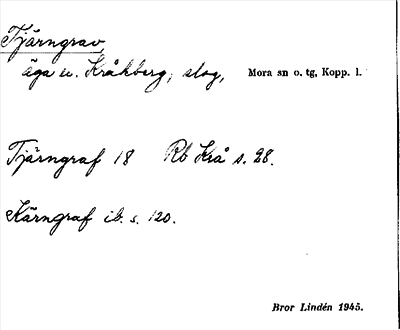 Tjärngrav
äga u. Kråkberg, slog, Mora sn o. tg, Kopp. l.
Tjärngraf 18 Rb Krå s. 28.
Kärngraf ib. s. 120.
Bror Lindén 1945.